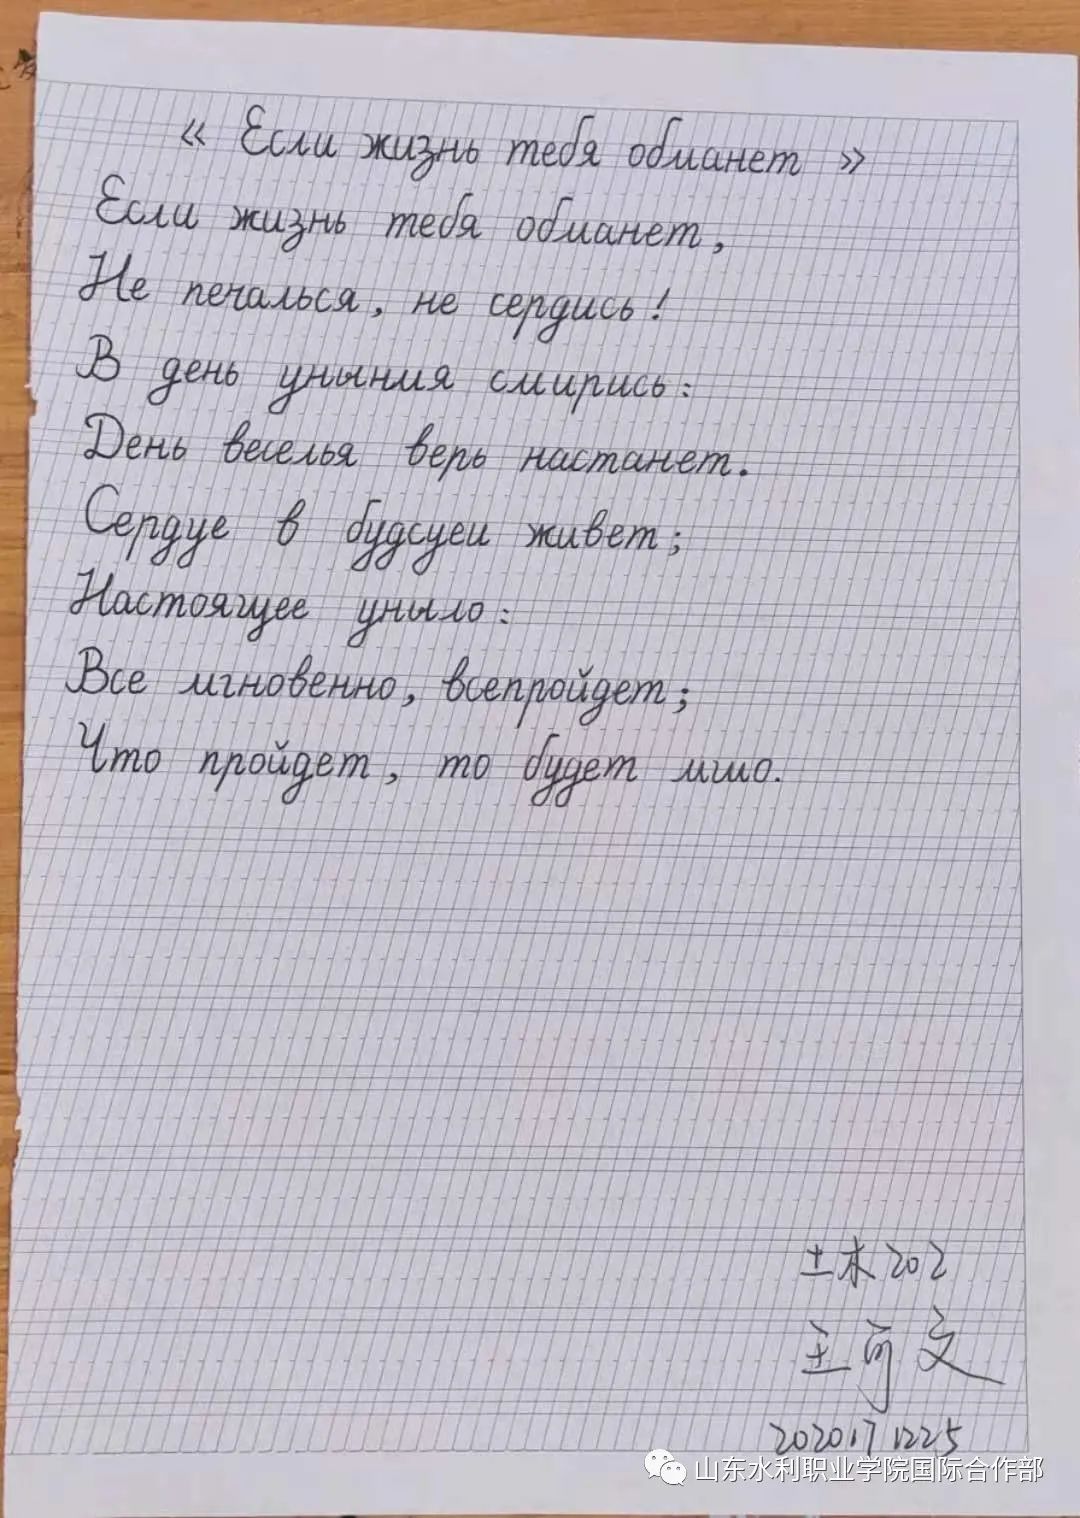 « Если жизнь тебя обманет »
Если жизнь тебя обманет,
Не печалься, не сердись!
В день уныния смирись:
День веселья верь настанет.
Сердце в будсуеи живет;
Настоящее уныло:
Все мгновенно, всепройдет;
Что пройдет, то будет мило.
土木202
王可文
2020171225
山东水利职业学院国际合作部